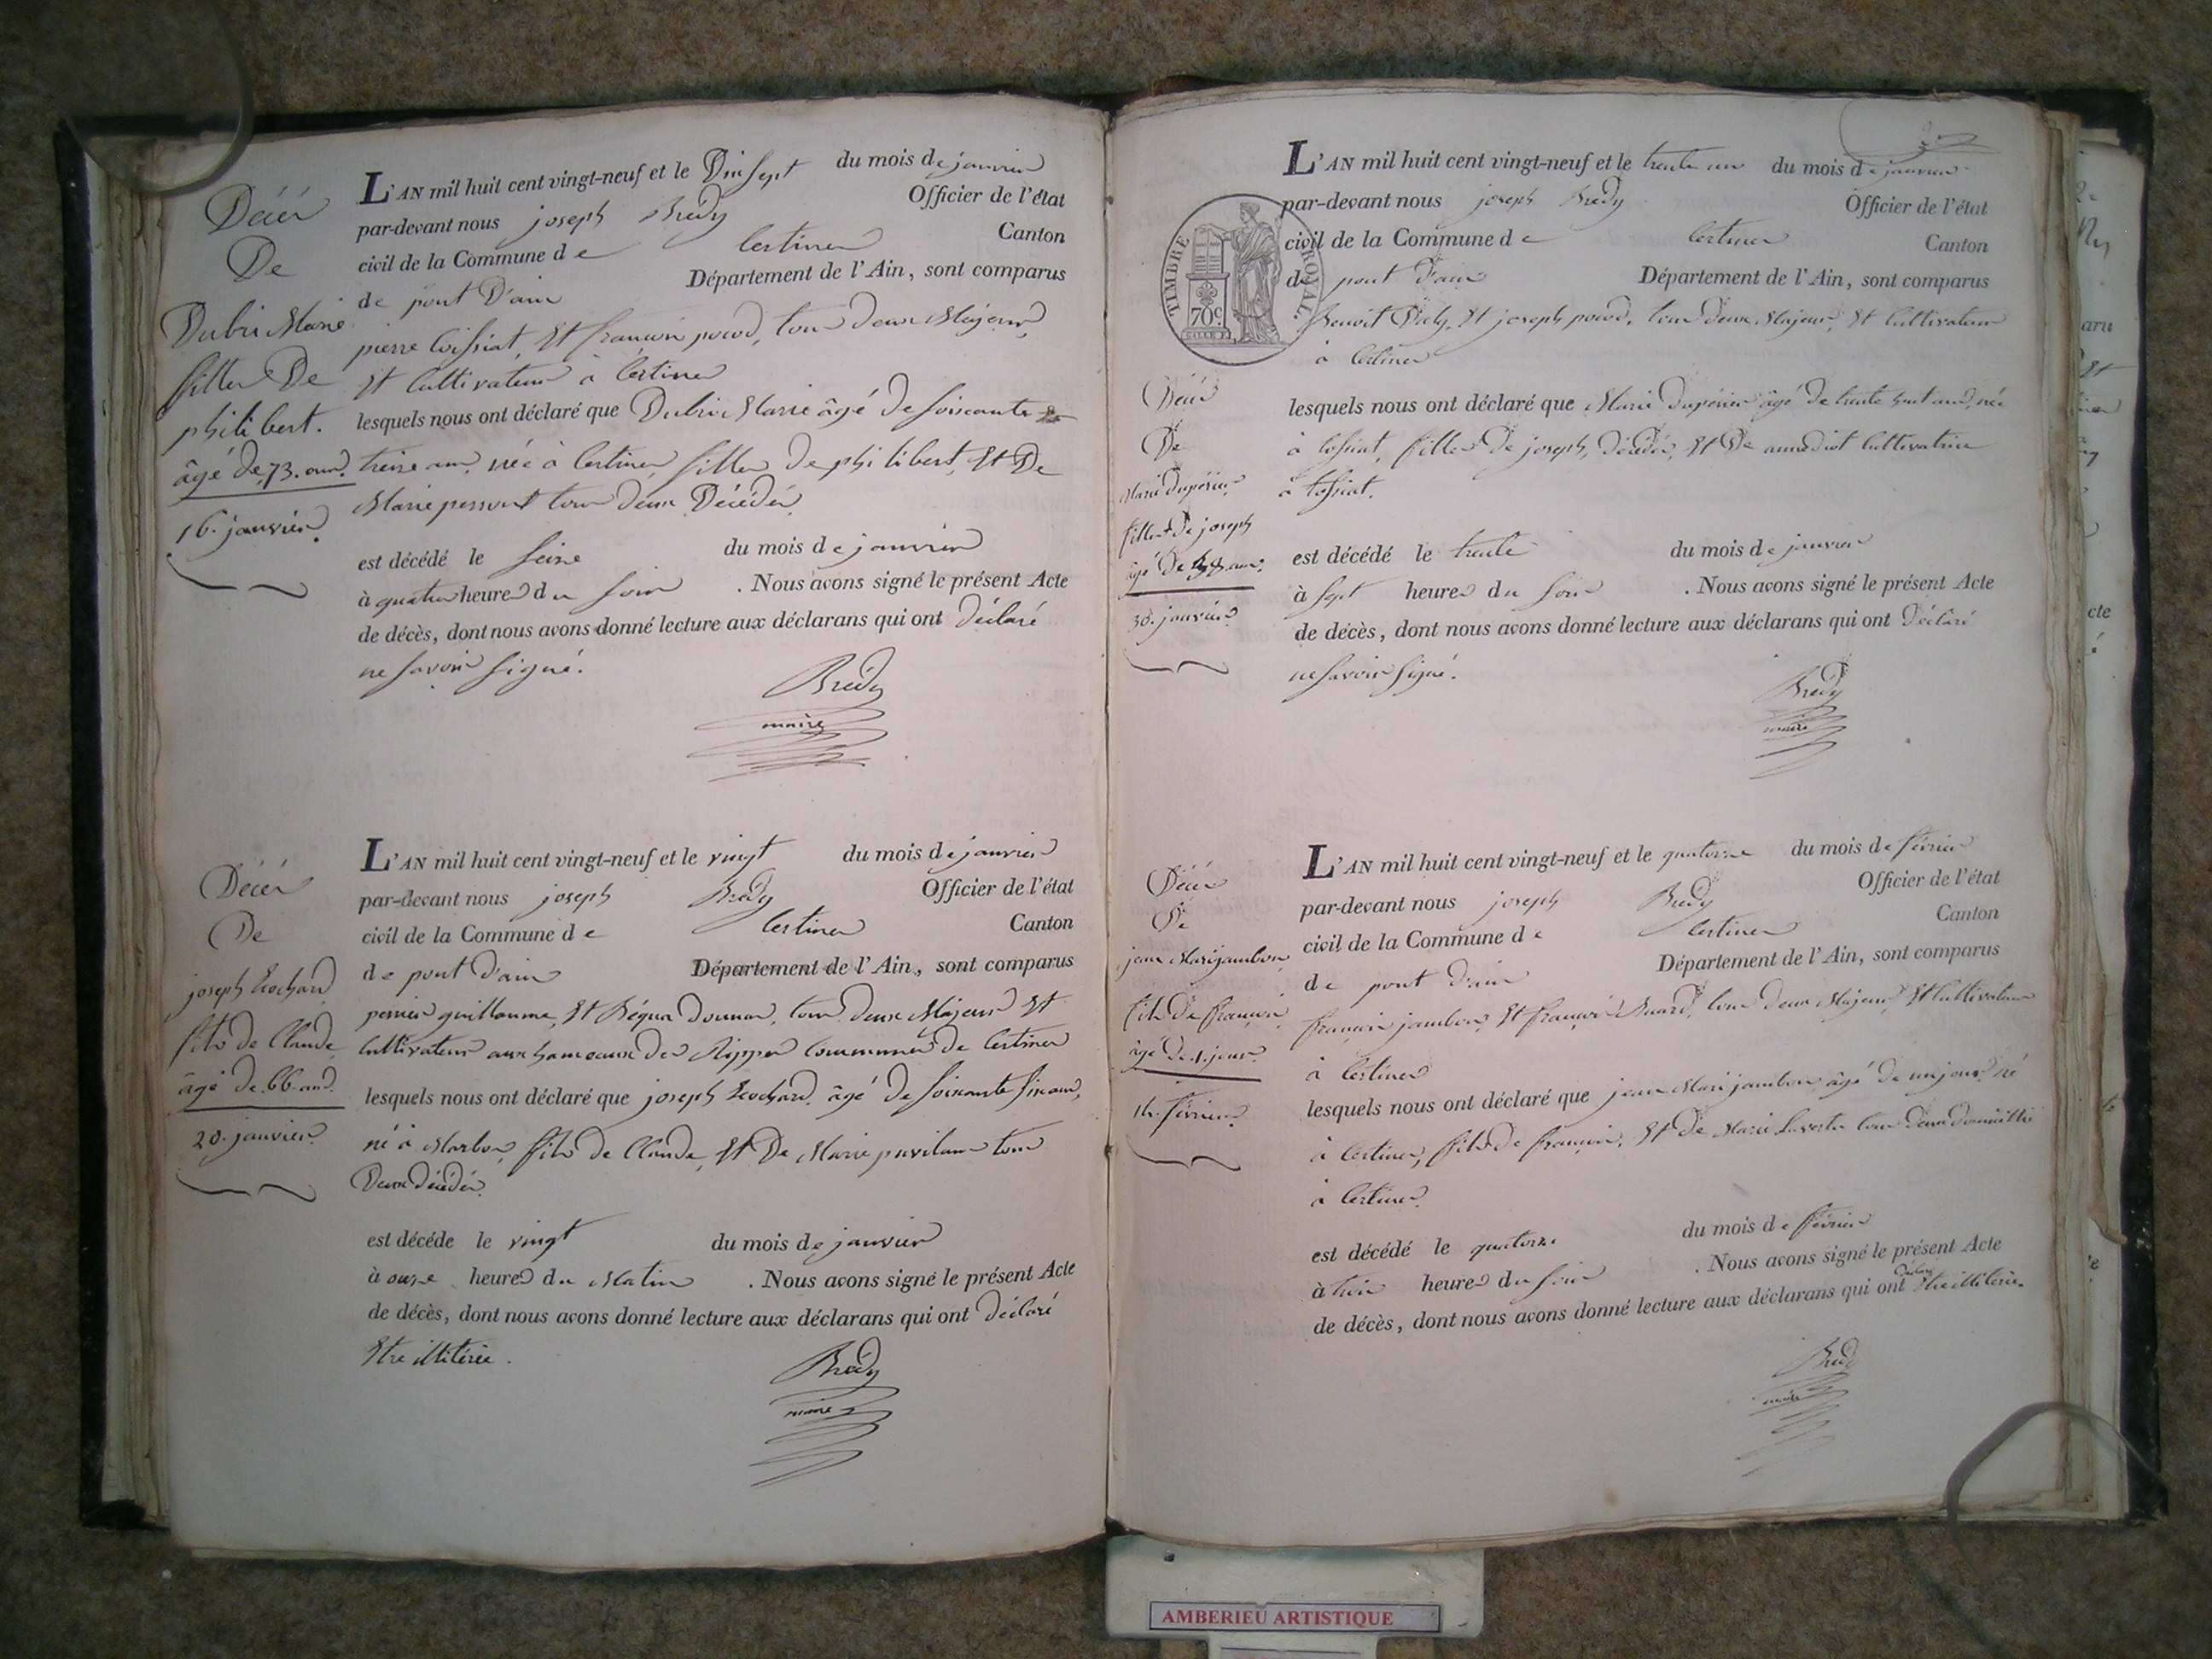 Décès
De
Dubri Marie
fille De
philibert.
âgé de 73. ans.
16. janvier.
L'AN mil huit cent vingt-neuf et le Dix sept du mois de janvier
par-devant nous joseph Brédy Officier de l'état
civil de la Commune de Certines Canton
de pont D'ain Département de l'Ain, sont comparus
pierre Coissiat, Et françois tous deux Majeurs,
Et Cultivateurs à Certines
lesquels nous ont déclaré que Dubri Marie âgé De soixante
treize ans, née à Certines, fille De philibert, Et De
Marie tous deux Décédés.
est décédé le seize du mois de janvier
à quatre heures du soir . Nous avons signé le présent Acte
de décès, dont nous avons donné lecture aux déclarans qui ont Déclaré
ne savoir signé.
Brédy
maire
Décès
De
joseph
fils de Claude
âgé de 66. ans.
20. janvier.
L'AN mil huit cent vingt-neuf et le vingt du mois de janvier
par-devant nous joseph Brédy Officier de l'état
civil de la Commune de Certines Canton
de pont d'ain Département de l'Ain, sont comparus
perrier guillaume, Et tous Deux Majeurs Et
Cultivateurs aux hameaux des Rippes commune de Certines
lesquels nous ont déclaré que joseph âgé De soixante six ans,
né à Marboz, fils de Claude, Et De Marie tous
Deux décédés.
est décédé le vingt du mois de janvier
à onze heures du Matin . Nous avons signé le présent Acte
de décès, dont nous avons donné lecture aux déclarans qui ont Déclaré
Etre illitérée.
Brédy
maire
TIMBRE ROYAL.
70c
Décès
De
Marie Dupérier
fille De joseph
âgé De 38 ans.
30. janvier.
L'AN mil huit cent vingt-neuf et le trente un du mois de janvier
par-devant nous joseph Brédy Officier de l'état
civil de la Commune de Certines Canton
de pont d'ain Département de l'Ain, sont comparus
Benoit Et joseph tous deux Majeurs, Et Cultivateurs
à Certines
lesquels nous ont déclaré que Marie Dupérier âgé De trente huit ans, née
à tossiat, fille De joseph, décédé, Et De Cultivatrice
à tossiat.
est décédé le trente du mois de janvier
à sept heures du soir . Nous avons signé le présent Acte
de décès, dont nous avons donné lecture aux déclarans qui ont Déclaré
ne savoir signé.
Brédy
maire
Décès
De
jean Mari jambon
fils De françois,
âgé de 1. jour.
14. février.
L'AN mil huit cent vingt-neuf et le quatorze du mois de février
par-devant nous joseph Brédy Officier de l'état
civil de la Commune de Certines Canton
de pont d'ain Département de l'Ain, sont comparus
françois jambon, Et françois tous deux Majeurs, Et Cultivateurs
à Certines
lesquels nous ont déclaré que jean Mari jambon âgé De un jour né
à Certines, fils De françois, Et De Marie tous deux domicilié
à Certines.
est décédé le quatorze du mois de février
à trois heures du soir . Nous avons signé le présent Acte
de décès, dont nous avons donné lecture aux déclarans qui ont Déclaré Etre illitérée.
Brédy
maire
AMBERIEU ARTISTIQUE